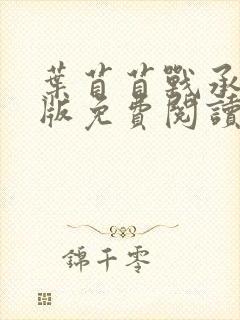 葉苜苜戰承
版免費閱讀
錦千零